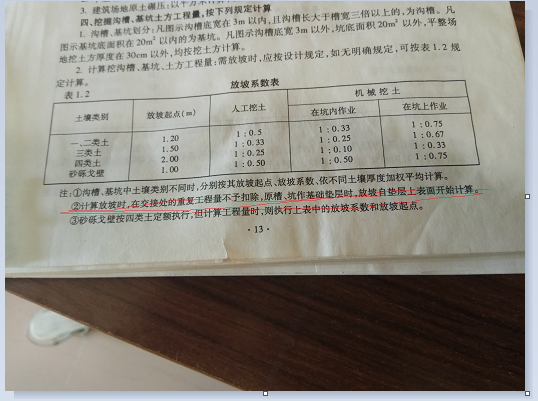 3. 建筑场地原土碾压:以平方米计
四、挖掘沟槽、基坑土方工程量,按下列规定计算
1. 沟槽、基坑划分:凡图示沟槽底宽在3m以内,且沟槽长大于槽宽三倍以上的,为沟槽。凡
图示基坑底面积在20m²以内的为基坑。凡图示沟槽底宽3m以外,坑底面积20m²以外,平整场
地挖土方厚度在30cm以外,均按挖土方计算。
2. 计算挖沟槽、基坑、土方工程量:需放坡时,应按设计规定,如无明确规定,可按表1.2规
定计算。
放坡系数表
表1.2
土壤类别 放坡起点(m) 人工挖土 机械挖土
在坑内作业 在坑上作业
一、二类土 1.20 1:0.5 1:0.33 1:0.75
三类土 1.50 1:0.33 1:0.25 1:0.67
四类土 2.00 1:0.25 1:0.10 1:0.33
砂砾戈壁 1.00 1:0.50 1:0.50 1:0.75
注:①沟槽、基坑中土壤类别不同时,分别按其放坡起点、放坡系数、依不同土壤厚度加权平均计算。
②计算放坡时,在交接处的重复工程量不予扣除,原槽、坑作基础垫层时,放坡自垫层上表面开始计算。
③砂砾戈壁按四类土定额执行,但计算工程量时,则执行上表中的放坡系数和放坡起点。
·13·